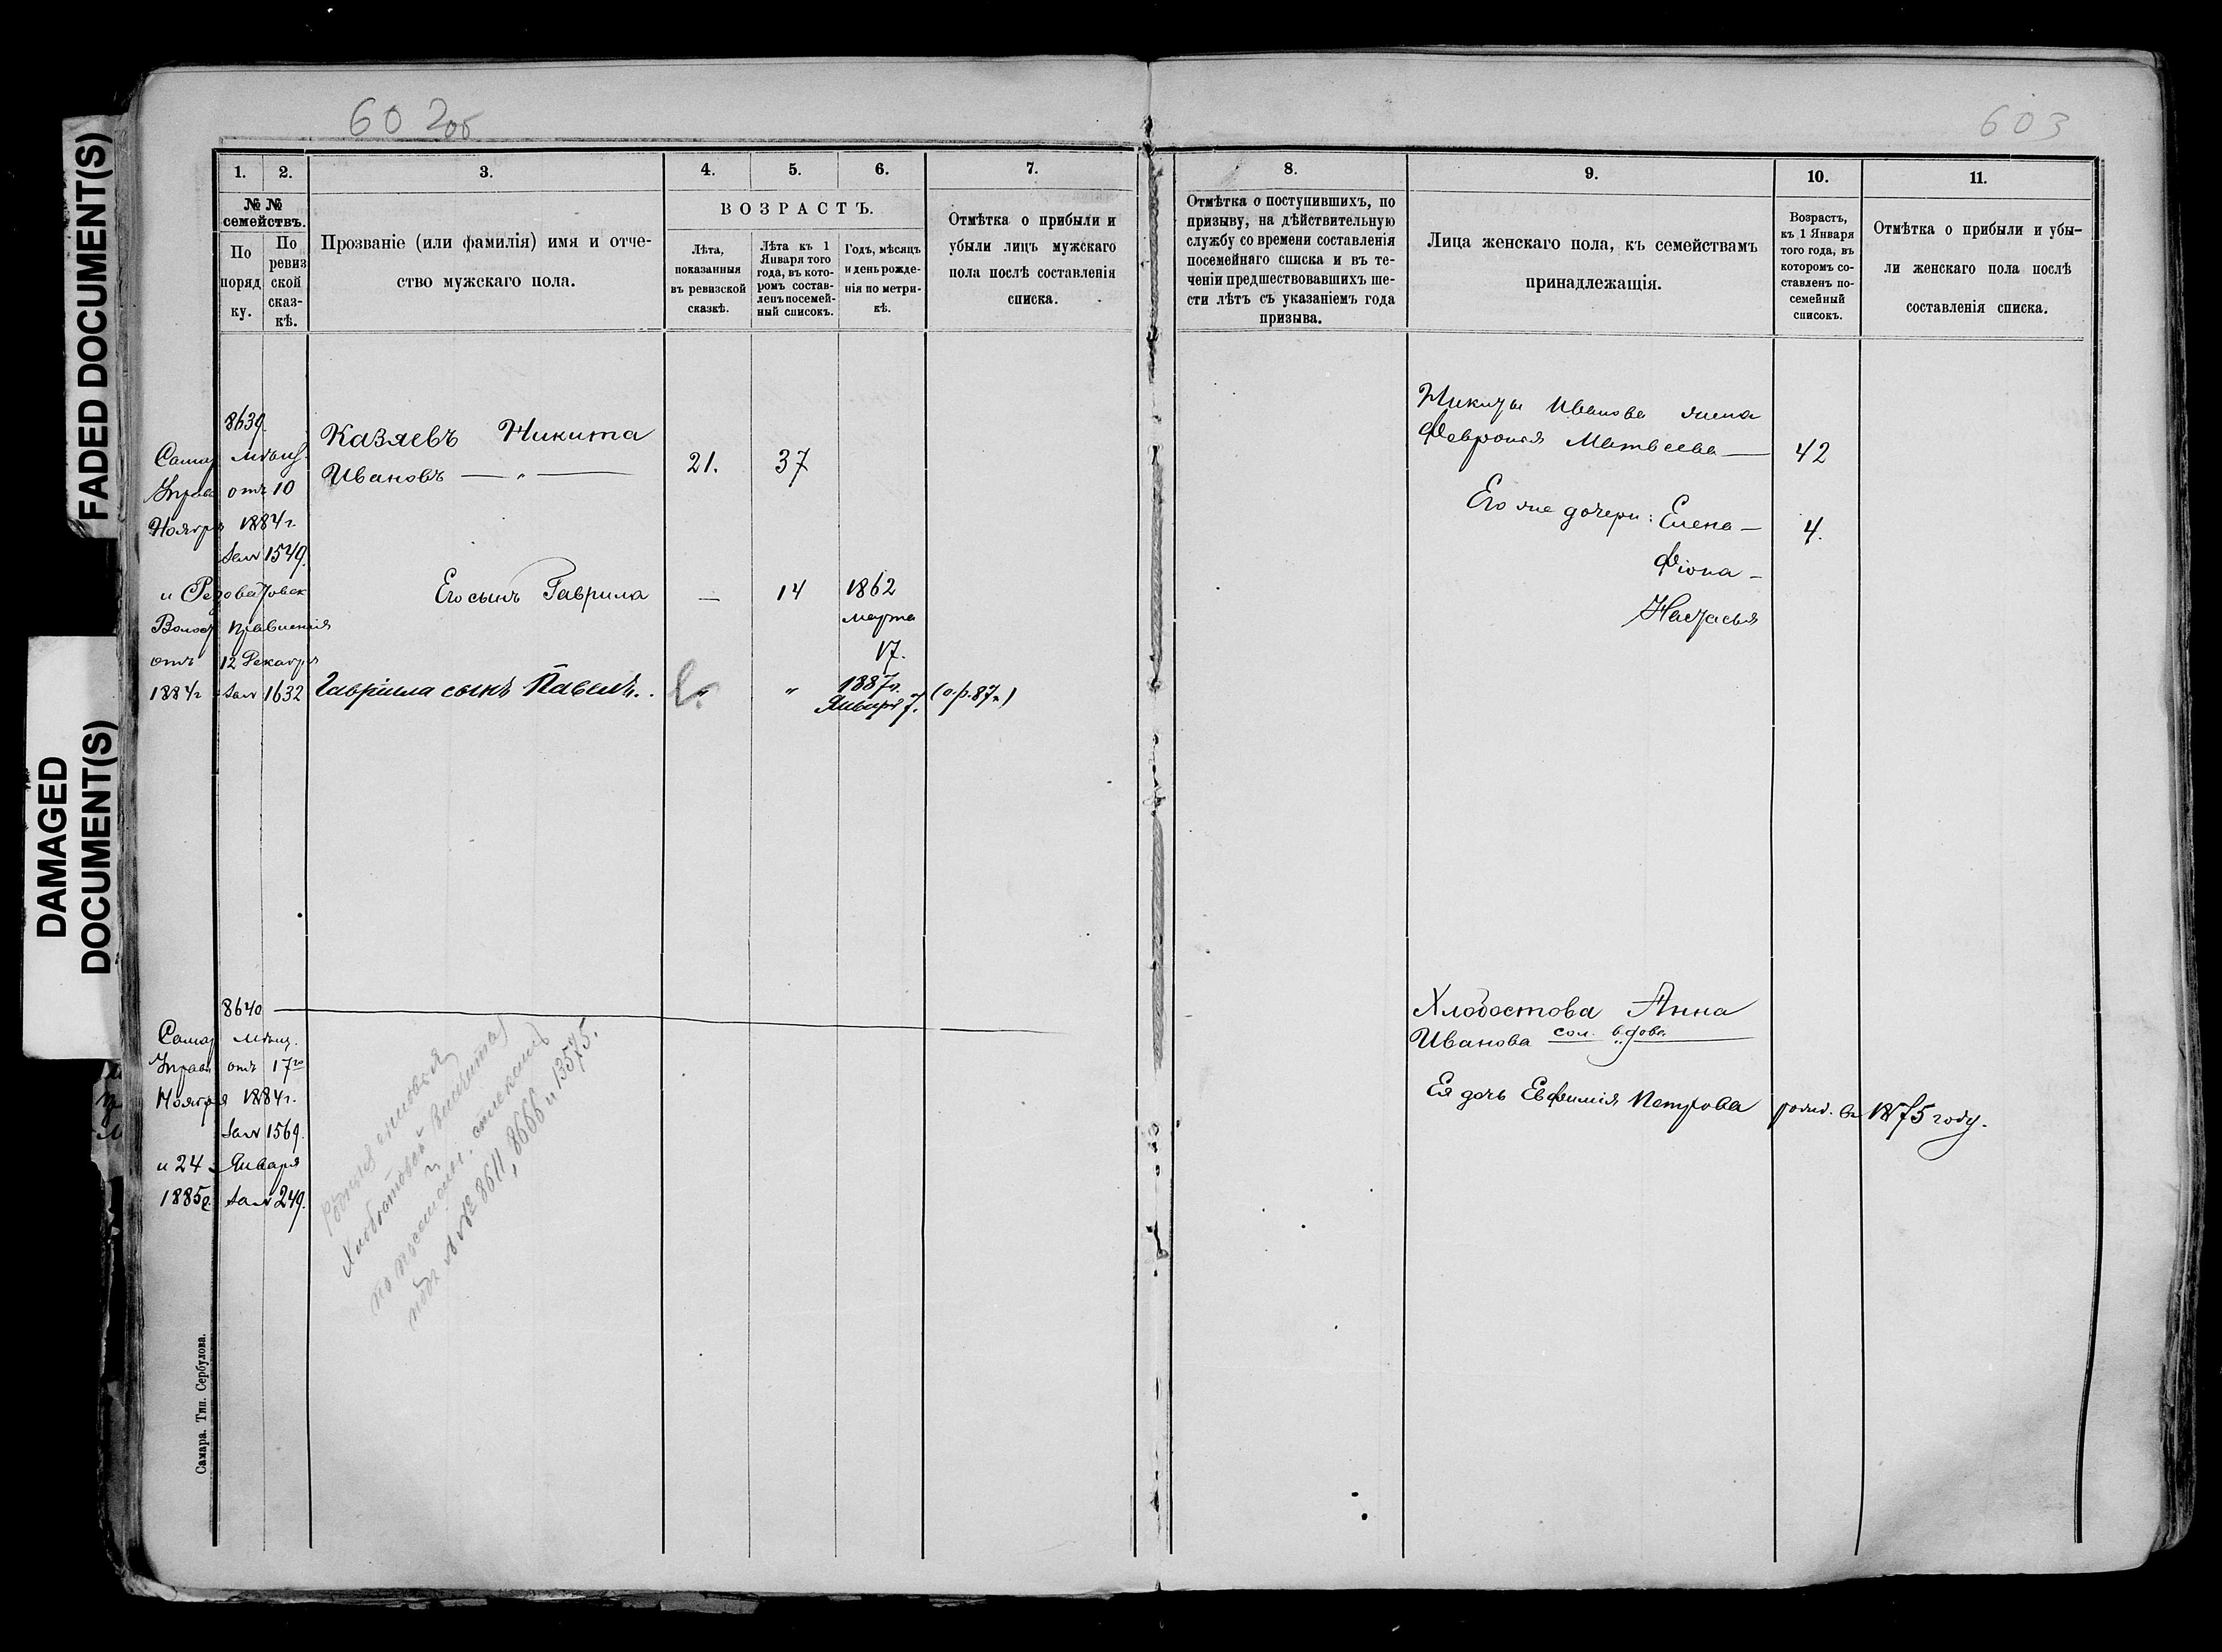 FADED DOCUMENT(S)
DAMAGED
DOCUMENT(S)
602об
603
1.
2.
3.
4.
5.
6.
7.
№ №
семействъ.
По
поряд
ку.
По
ревиз
ской
сказ-
кѣ.
Прозваніе (или фамилія) имя и отче-
ство мужскаго пола.
ВОЗРАСТЪ.
Лѣта,
показанныя
въ ревизской
сказкѣ.
Лѣта къ 1
Января того
года, въ кото-
ромъ состав-
ленъ посемей-
ный списокъ.
Годъ, мѣсяцъ
и день рожде-
нія по метри-
кѣ.
Отмѣтка о прибыли и
убыли лицъ мужскаго
пола послѣ составленія
списка.
8.
9.
10.
11.
Отмѣтка о поступившихъ, по
призыву, на дѣйствительную
службу со времени составленія
посемейнаго списка и въ те-
ченіи предшествовавшихъ ше-
сти лѣтъ съ указаніемъ года
призыва.
Лица женскаго пола, къ семействамъ
принадлежащія.
Возрастъ,
къ 1 Января
того года, въ
которомъ со-
ставленъ по-
семейный
списокъ.
Отмѣтка о прибыли и убы-
ли женскаго пола послѣ
составленія списка.
8639.
Самар Мѣщ.
Управ отъ 10
Ноября 1884 г
за № 1549.
Волост Правленія
отъ 12 Декабря
1884 г за № 1632
Казяевъ Никита
Ивановъ — " —
21.
37
Его сынъ Гаврила
—
14
1862
марта
17.
Гавріила сынъ Павелъ.
"
1887 г.
Января 7.
(о.р. 87 г)
Никиты Иванова жена
Феврония Матвеева —
42
Его же дочери: Елена —
4.
Фіона —
Настасья
8640
Самар Мѣщ.
Управ отъ 17го
Ноября 1884 г.
за № 1569.
и 24 Января
1885 г за № 249.
по посемейн.
подъ №№ 8611, 8666 и 13575.
Хлобостова Анна
Иванова сол. вдова
Ея дочь Евфимія Петрова родил. въ 1875 году.
Самара. Тип. Сербулова.